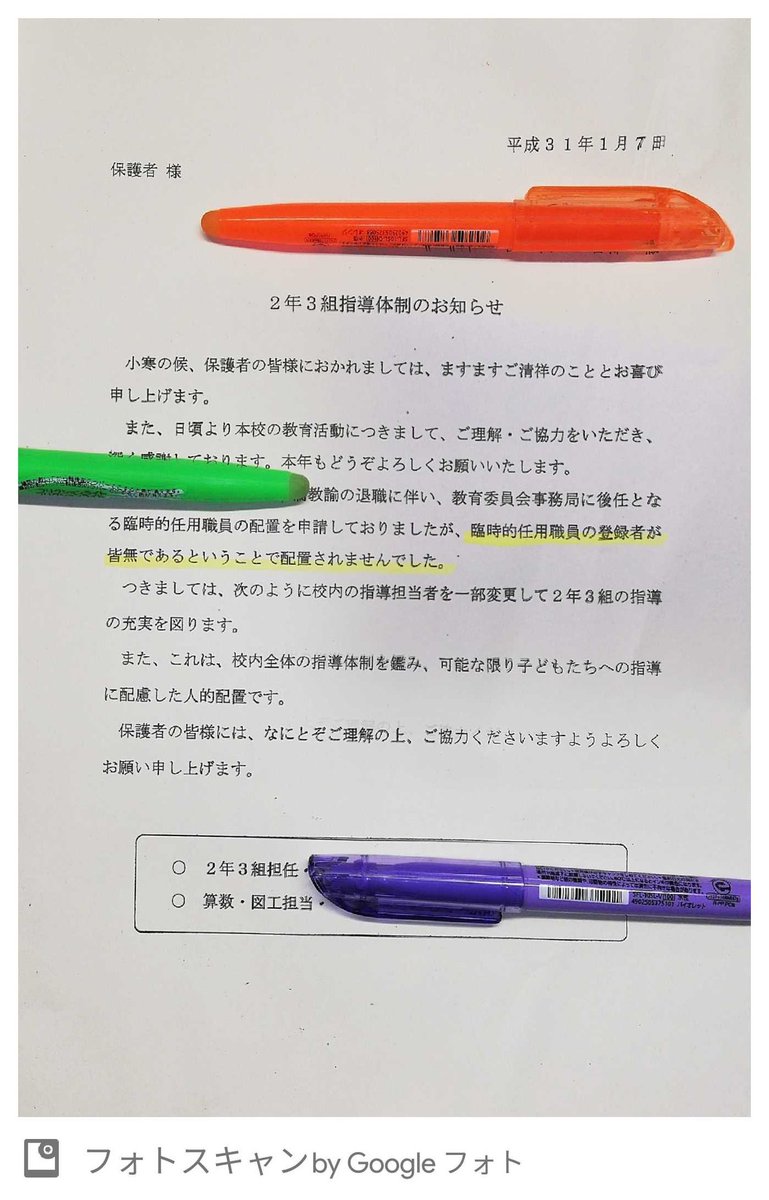 平成31年1月7日
保護者 様
2年3組指導体制のお知らせ
小寒の候、保護者の皆様におかれましては、ますますご清祥のこととお喜び
申し上げます。
また、日頃より本校の教育活動につきまして、ご理解・ご協力をいただき、
深く感謝しております。本年もどうぞよろしくお願いいたします。
教諭の退職に伴い、教育委員会事務局に後任とな
る臨時的任用職員の配置を申請しておりましたが、臨時的任用職員の登録者が
皆無であるということで配置されませんでした。
つきましては、次のように校内の指導担当者を一部変更して2年3組の指導
の充実を図ります。
また、これは、校内全体の指導体制を鑑み、可能な限り子どもたちへの指導
に配慮した人的配置です。
保護者の皆様には、なにとぞご理解の上、ご協力くださいますようよろしく
お願い申し上げます。
○ 2年3組担任
○ 算数・図工担当
4902505375101 バイオレット
フォトスキャン by Google フォト